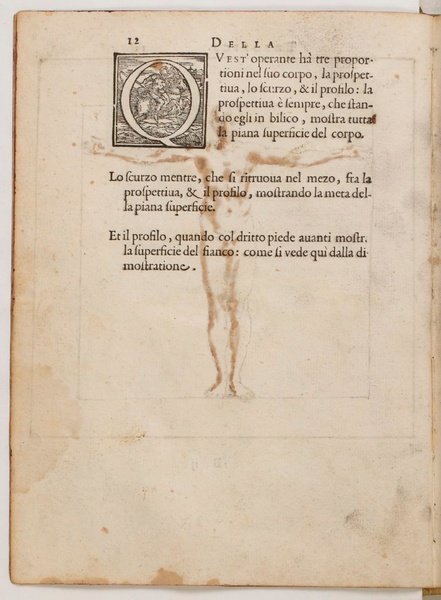 12 DELLA
QVEST' operante hà tre propor-
tioni nel suo corpo, la prospet-
tiua, lo scurzo, & il profilo: la
prospettiua è sempre, che stan-
do egli in bilico, mostra tutta
la piana superficie del corpo.
Lo scurzo mentre, che si ritruoua nel mezo, fra la
prospettiua, & il profilo, mostrando la meta del-
la piana superficie.
Et il profilo, quando col dritto piede auanti mostra
la superficie del fianco: come si vede quì dalla di
mostratione.